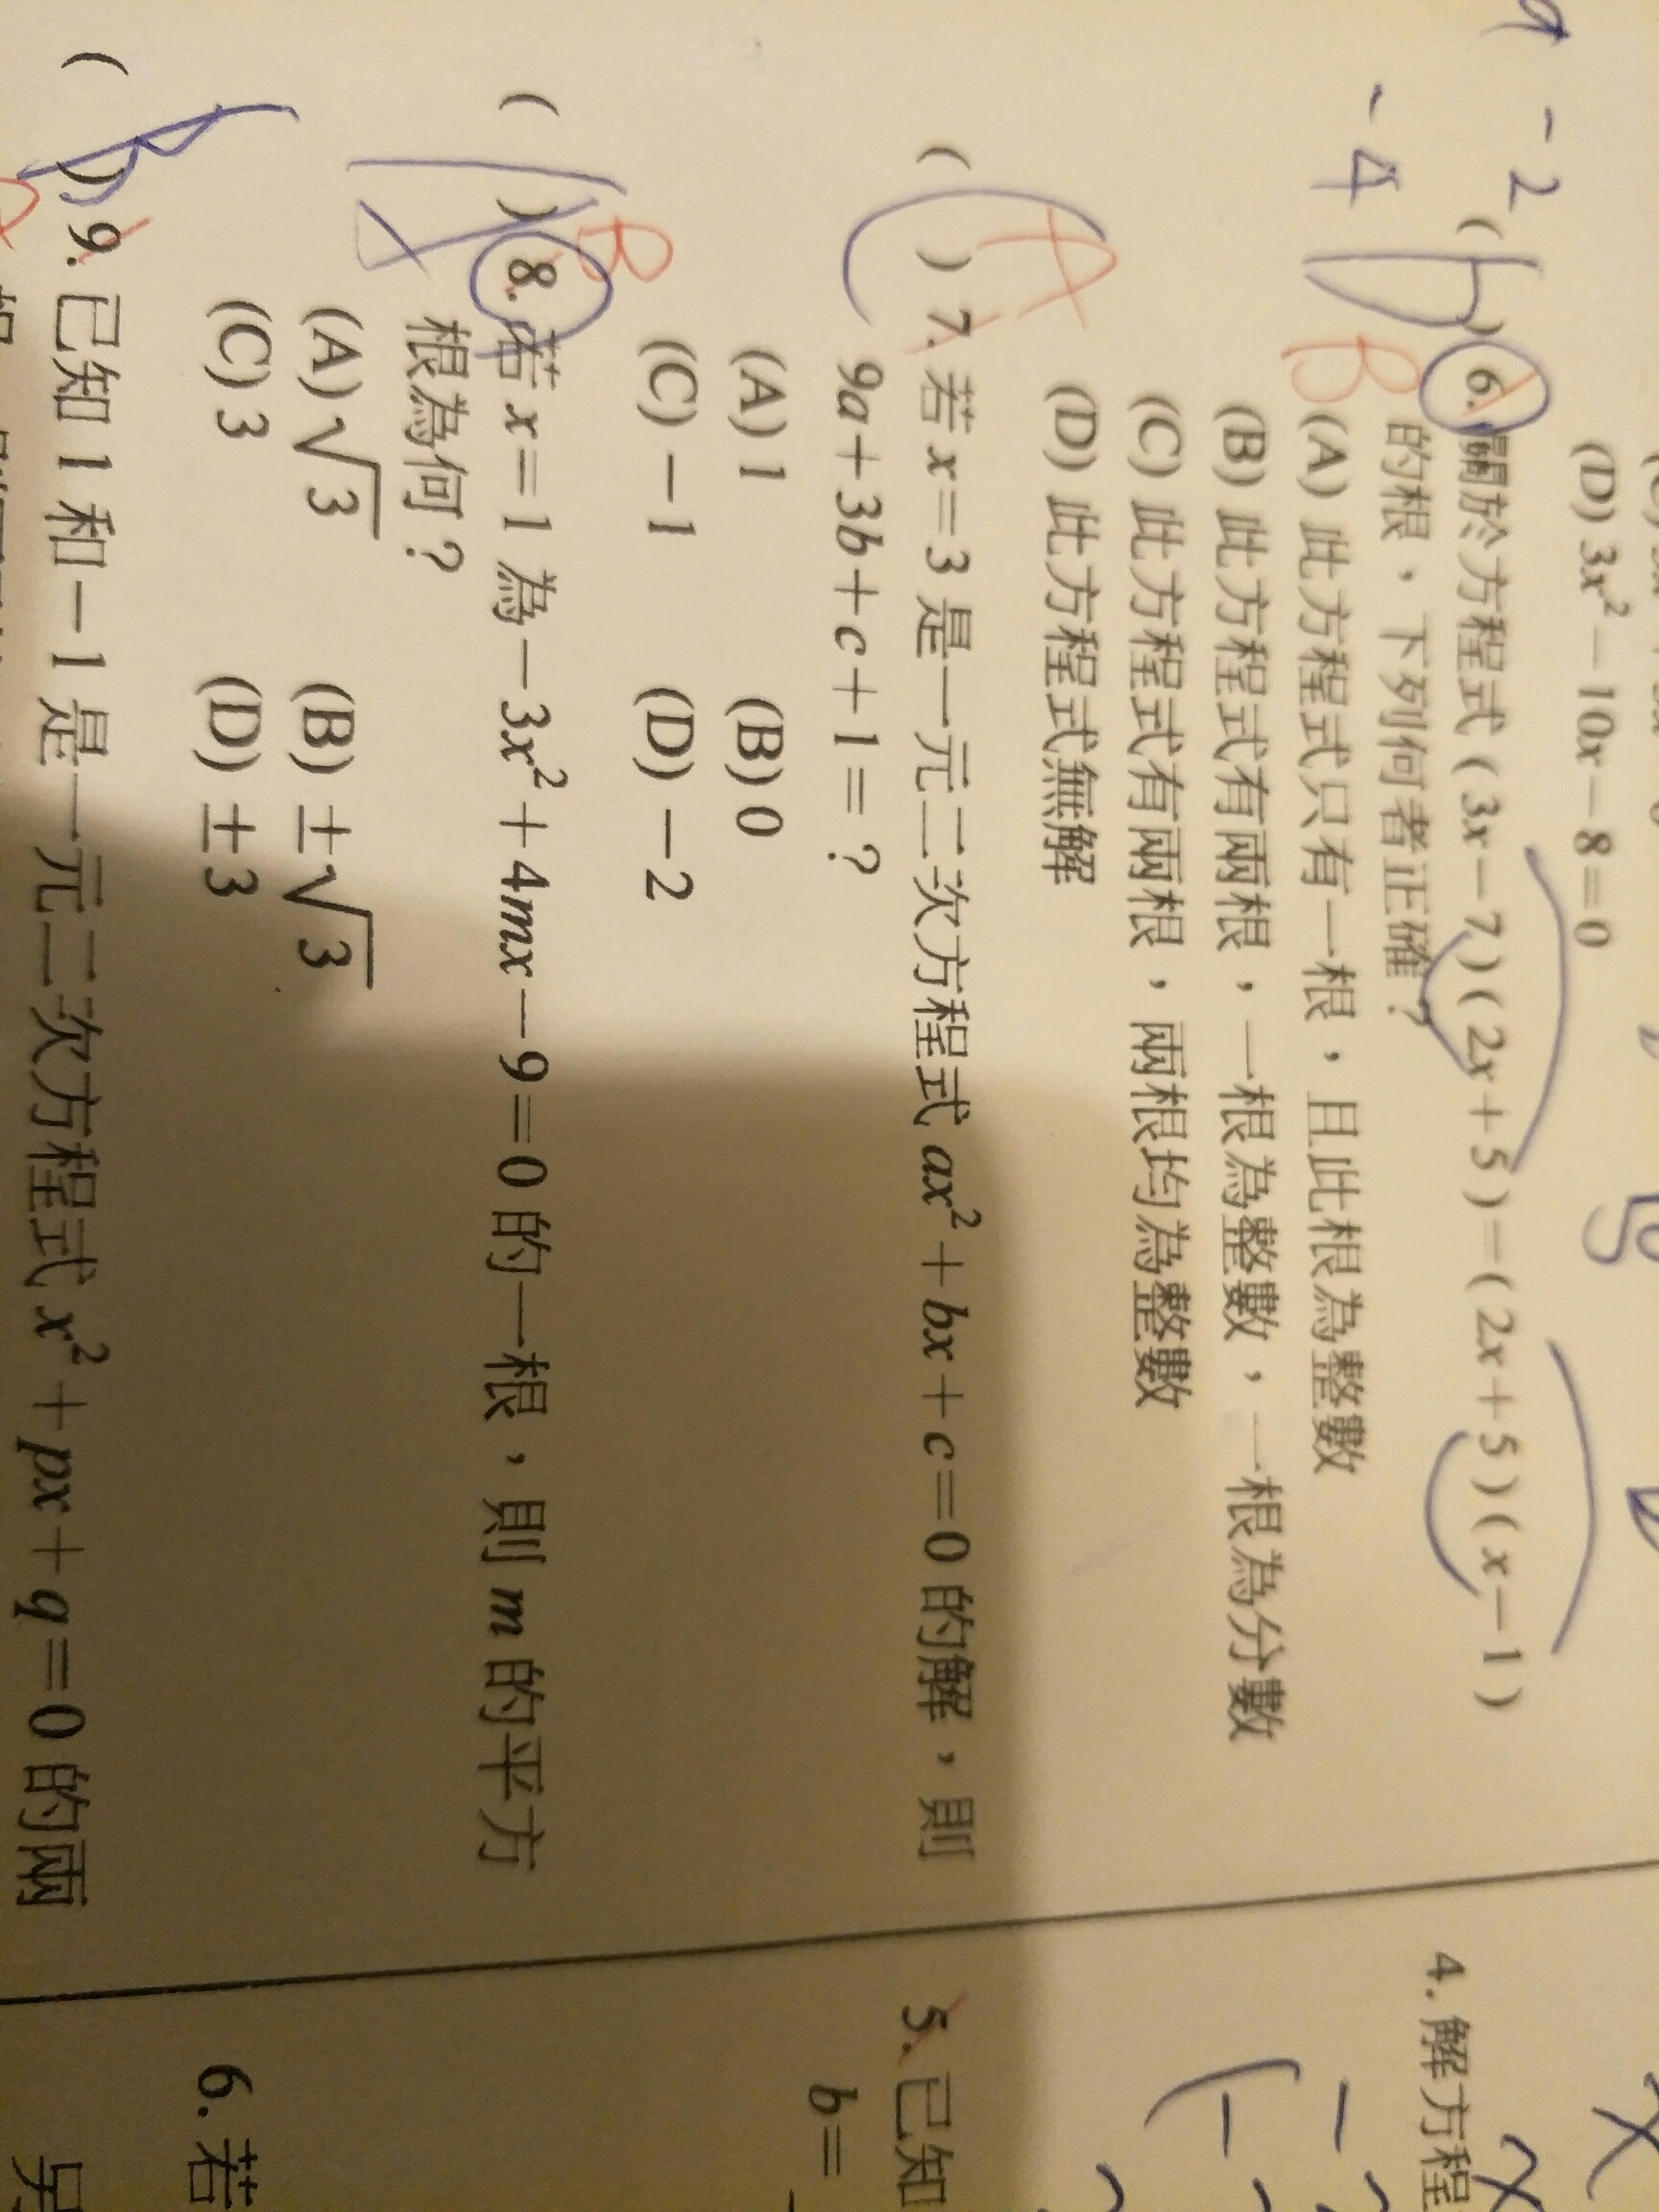 (D) 3x²－10x－8＝0
－2
－4
( ) 6. 關於方程式 ( 3x－7 ) ( 2x＋5 )＝( 2x＋5 ) ( x－1 )
的根，下列何者正確？
B
(A) 此方程式只有一根，且此根為整數
(B) 此方程式有兩根，一根為整數，一根為分數
(C) 此方程式有兩根，兩根均為整數
(D) 此方程式無解
A
( ) 7. 若 x＝3 是一元二次方程式 ax²＋bx＋c＝0 的解，則
9a＋3b＋c＋1＝？
(A) 1 (B) 0
(C) －1 (D) －2
B
( ) 8. 若 x＝1 為－3x²＋4mx－9＝0 的一根，則 m 的平方
根為何？
(A) √3 (B) ±√3
(C) 3 (D) ±3
( ) 9. 已知 1 和－1 是一元二次方程式 x²＋px＋q＝0 的兩
4. 解方程
5. 已知
b＝
6. 若
另